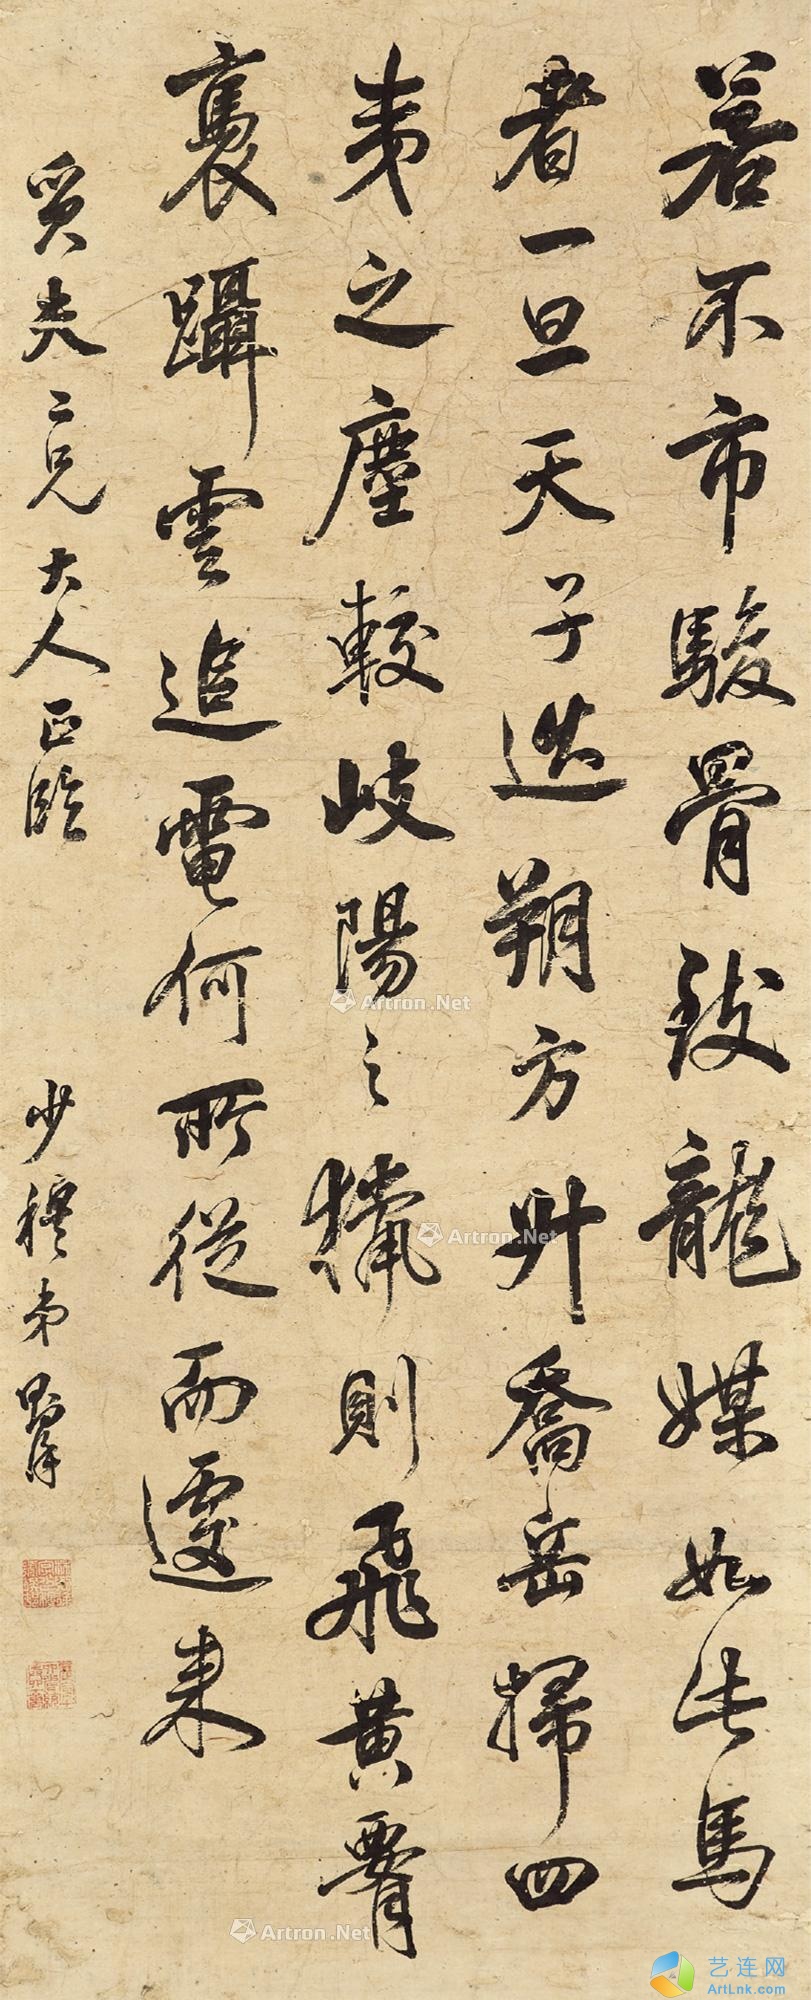 若不市駿骨致龍媒如此馬
者一旦天子巡朔方升喬岳掃四
夷之塵較岐陽之獵則飛黃騕
褭躡雲追電何所從而遽來
奐夫二兄大人正臨
少穆弟
Artron.Net
Artron.Net
Artron.Net
艺连网
ArtLnk.com